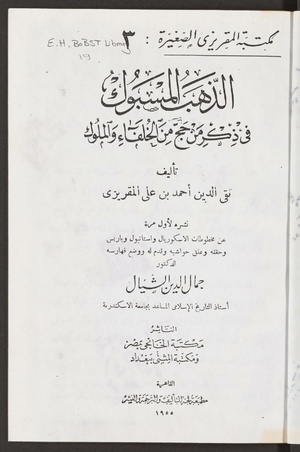 مكتبة المقريزى الصغيرة : ٣
E.H. BoBST Library
19
الذهب المسبوك
فى ذكر من حج من الخلفاء والملوك
تأليف
تقى الدين أحمد بن على المقريزى
نشره لأول مرة
عن مخطوطات الاسكوريال واستانبول وباريس
وحققه وعلق حواشيه وقدم له ووضع فهارسه
الدكتور
جمال الدين الشيال
أستاذ التاريخ الإسلامى المساعد بجامعة الاسكندرية
الناشر
مكتبة الخانجى بمصر
ومكتبة المثنى ببغداد
القاهرة
مطبعة لجنة التأليف والترجمة والنشر
١٩٥٥